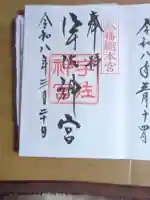 八幡総本宮
奉拝
宇佐神宮
宇佐神宮
令和八年三月二十日
令和八年三月十四